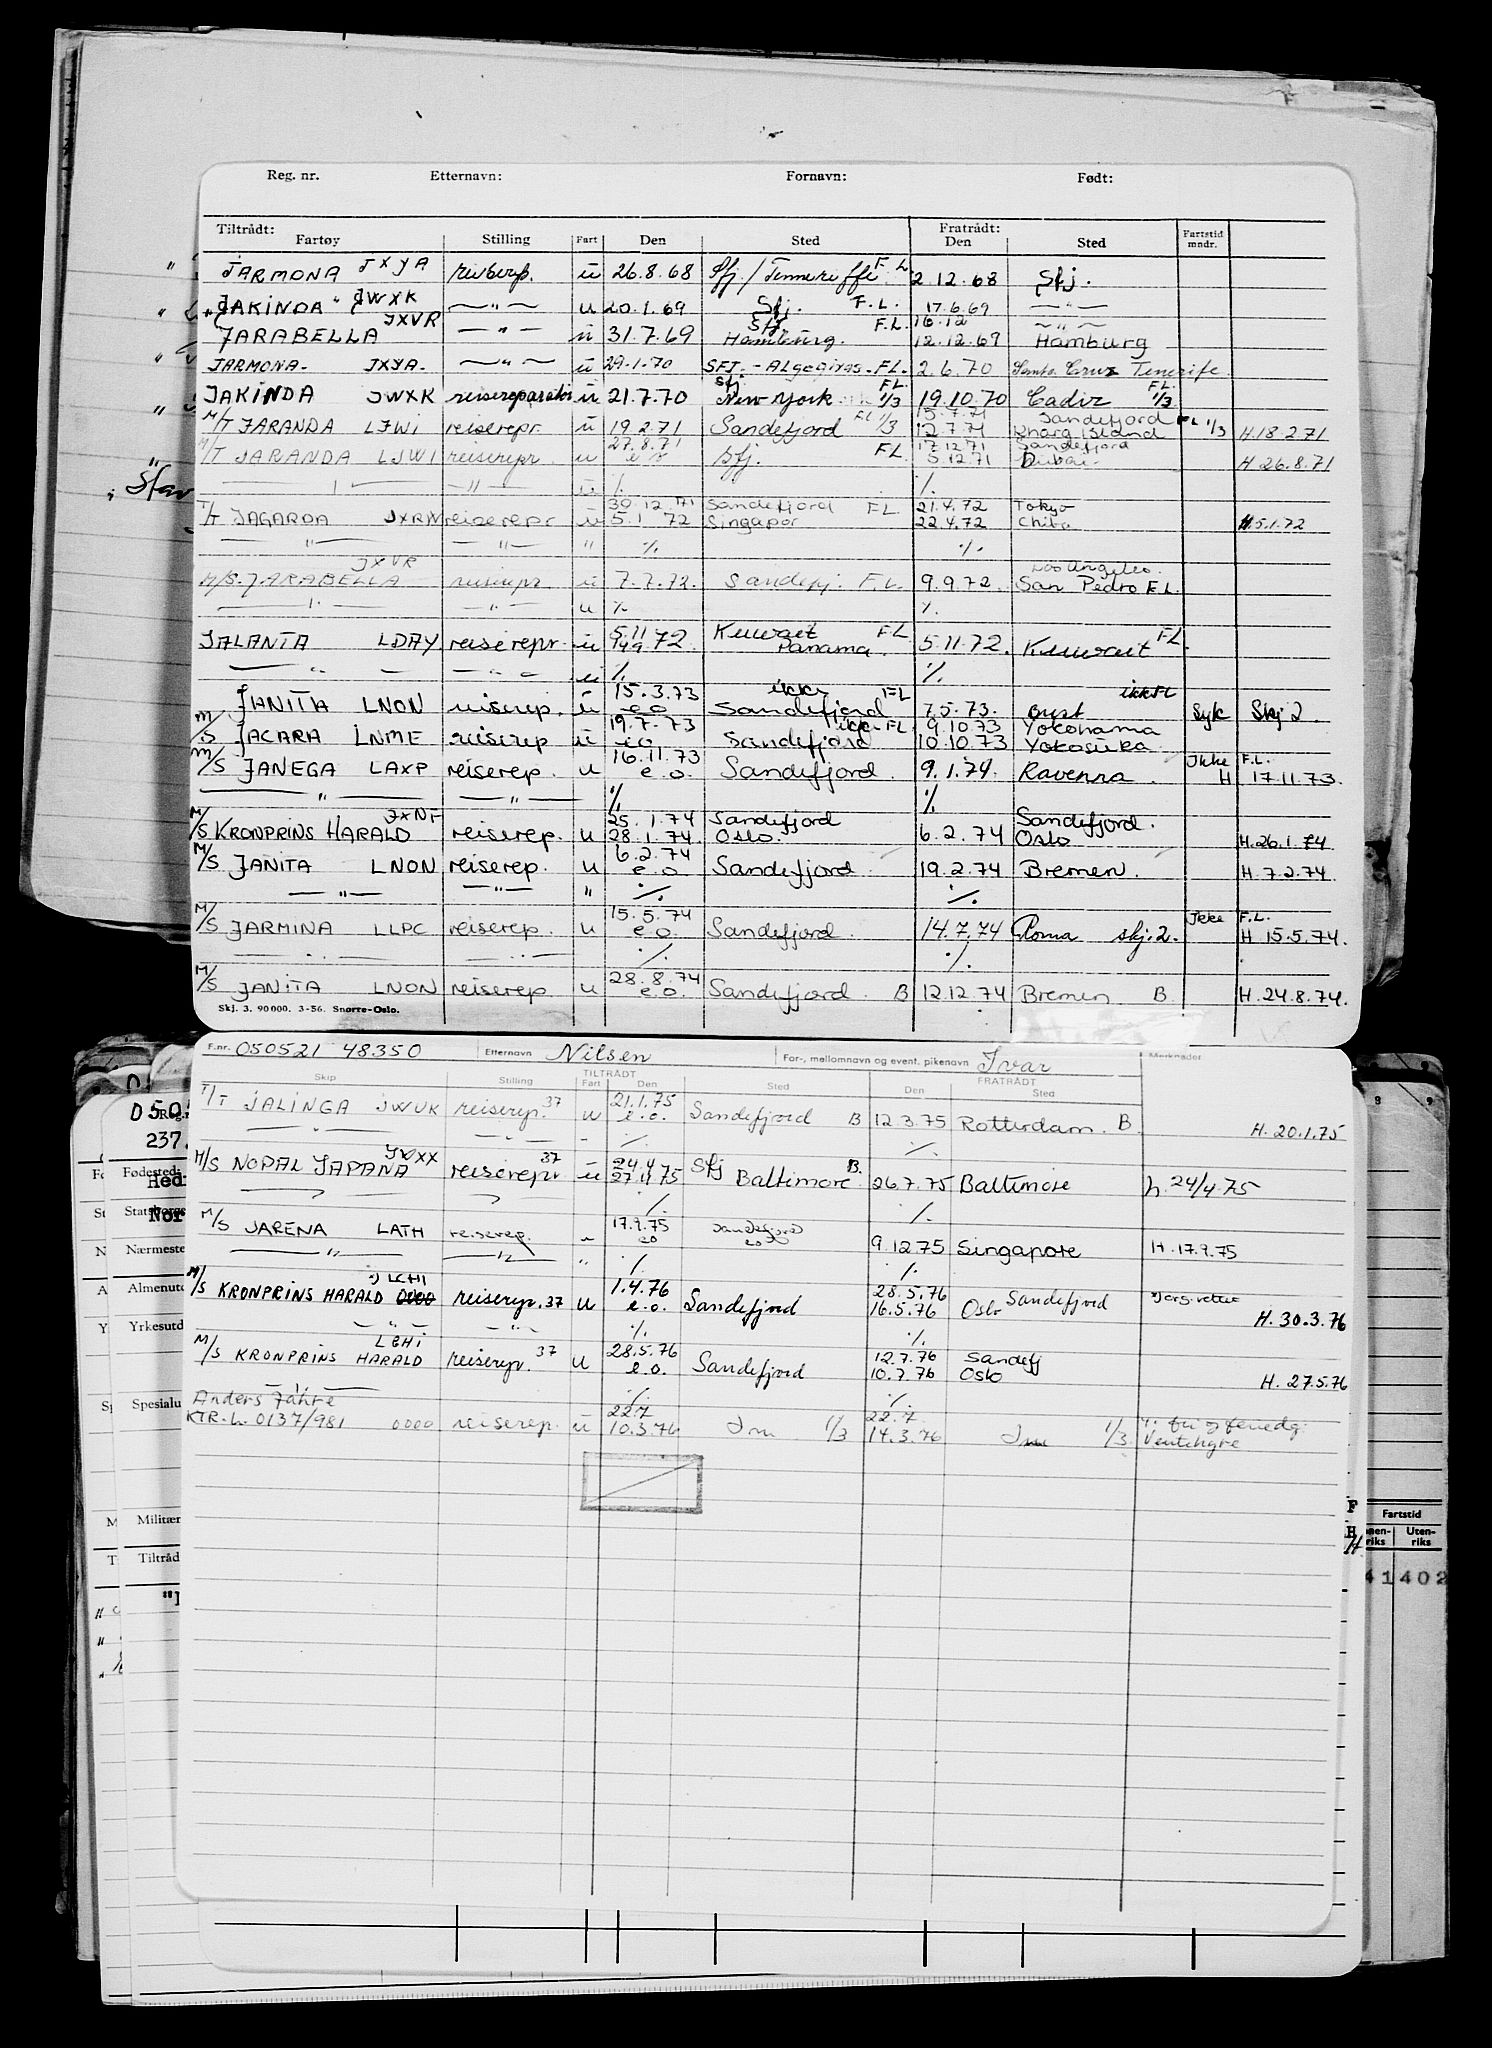 Reg. nr. Etternavn: Fornavn: Født:
Tiltrådt: Fratrådt: Fartstid
Fartøy Stilling Fart Den Sted Den Sted mndr.
JARMONA JXYA u 26.8.68 Sfj./Tenneriffe F.L 2.12.68 Sfj.
"JAKINDA" JWXK — " — u 20.1.69 Sfj. F.L. 17.6.69 — " —
JXVR Sfj F.L. 16.12 — " —
JARABELLA — " — u 31.7.69 Hamburg. 12.12.69 Hamburg
JARMONA. JXYA. — " — u 29.1.70 SFJ. - Algeciras. FL. 2.6.70 Santa Cruz Tenerife.
Sfj FL. FL.
JAKINDA JWXK reisereparatør u 21.7.70 New York 1/3 19.10.70 Cadiz 1/3
15.7.71 Sandefjord
M/T JARANDA LJWI reiserepr. u 19.2.71 Sandefjord FL 1/3 12.7.71 Kharg Island FL 1/3 H.18.2.71
27.8.71 17.12.71 Sandefjord
M/T JARANDA LJWI reiserepr. u e o Sfj. FL. 5.12.71 Dubai. H 26.8.71
— " — — " — u % %
30.12.71 Sandefjord FL 21.4.72 Tokyo
T/T JAGARDA JXRN reiserepr u 5.1 72 Singapor 22.4.72 Chiba H.5.1.72
— " — — " — " % %
JXVR Los Angeles.
M/S. JARABELLA reiserepr u 7.7.72. Sandefj. F.L. 9.9.72. San Pedro F.L.
— " — — " — u % %
5.11 Kuwait FL FL
JALANTA LDAY reiserepr. u 14.9 72. Panama. 5.11.72. Kuwait
— " — — " — u % %
15.3.73 ikke FL ikke FL
JANITA LNON reiserep. u e o Sandefjord 7.5.73. Syk Skj 2.
19.7.73 ikke FL. 9.10.73 Yokohama
M/S JACARA LNME reiserep u e o Sandefjord 10.10.73 Yokosuka.
16.11.73 Ikke F.L.
M/S JANEGA LAXP reiserep. u e.o. Sandefjord. 9.1.74. Ravenna. H 17.11.73.
— " — — " — % %
JXNF 25.1.74 Sandefjord Sandefjord.
M/S KRONPRINS HARALD reiserep. u 28.1.74. Oslo. 6.2.74 Oslo H.26.1.74
6.2.74
M/S JANITA LNON reiserep. u e.o. Sandefjord. 19.2.74 Bremen. H.7.2.74
— " — — " — " % %
15.5.74 Ikke F.L.
M/S JARMINA LLPC reiserep. u e.o. Sandefjord. 14.7.74 Roma skj.2. H 15.5.74.
— " — — " — % %
28.8.74
M/S JANITA LNON reiserep u e.o. Sandefjord. B 12.12.74 Bremen B H.24.8.74.
Skj. 3. 90000. 3-56. Snorre-Oslo.
F.nr. 050521 48350 Etternavn Nilsen For-, mellomnavn og event. pikenavn Ivar Merknader
TILTRÅDT FRATRÅDT
Skip Stilling Fart Den Sted Den Sted
21.1.75
T/T JALINGA JWUK reiserep. 37 u e.o. Sandefjord B 12.3.75 Rotterdam. B. H. 20.1.75
— " — — " — - % %
24.4 Sfj B.
M/S NOPAL JAPANA reiserepr 37 u 27.4.75 Baltimore 26.7.75 Baltimore h. 24/4.75
% %
17.9.75 Sandefjord
M/S JARENA LATH reiserep. e o 9.12.75 Singapore H.17.9.75
— " — — " — " % %
LCHI 1.4.76 28.5.76 Sandefjord
M/S KRONPRINS HARALD 0000 reiserep. 37 u e.o. Sandefjord 16.5.76 Oslo H. 30.3.76
— " — — " — % %
28.5.76 12.7.76 Sandefj
M/S KRONPRINS HARALD reiserep. 37 u e.o. Sandefjord 10.7.76 Oslo H. 27.5.76
— " — % %
Anders Jahre 22.7 22.7
KTR.L. 0137/981 0000 reiserep. u 10.3.76 1/3 14.3.76 1/3 Ventehyre
D 505
237.
Fødested:
Hed
Statsborge
Nor
Nærmeste
Almenutd
Yrkesutd
Spesialu
Militær
Tiltråd
8 9
Fartstid
Uten-
riks riks
41402